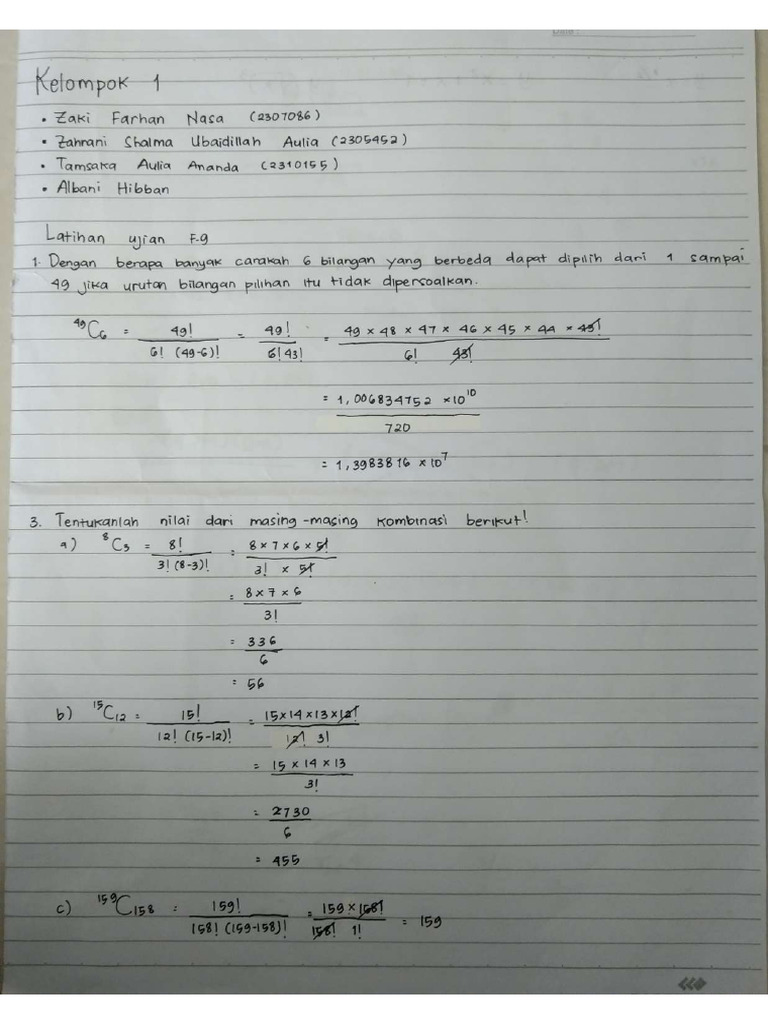 Kelompok 1
• Zaki Farhan Nasa (2307086)
• Zahrani Shalma Ubaidillah Aulia (2305452)
• Tamsaka Aulia Ananda (2310155)
• Albani Hibban
Latihan ujian F.9
1. Dengan berapa banyak carakah 6 bilangan yang berbeda dapat dipilih dari 1 sampai
49 jika urutan bilangan pilihan itu tidak dipersoalkan.
⁴⁹C₆ = 49! / 6! (49-6)! = 49! / 6! 43! = 49 × 48 × 47 × 46 × 45 × 44 × 43! / 6! 43!
= 1,006834752 × 10¹⁰ / 720
= 1,3983816 × 10⁷
3. Tentukanlah nilai dari masing-masing kombinasi berikut!
a) ⁸C₃ = 8! / 3! (8-3)! = 8 × 7 × 6 × 5! / 3! × 5!
= 8 × 7 × 6 / 3!
= 336 / 6
= 56
b) ¹⁵C₁₂ = 15! / 12! (15-12)! = 15 × 14 × 13 × 12! / 12! 3!
= 15 × 14 × 13 / 3!
= 2730 / 6
= 455
c) ¹⁵⁹C₁₅₈ = 159! / 158! (159-158)! = 159 × 158! / 158! 1! = 159